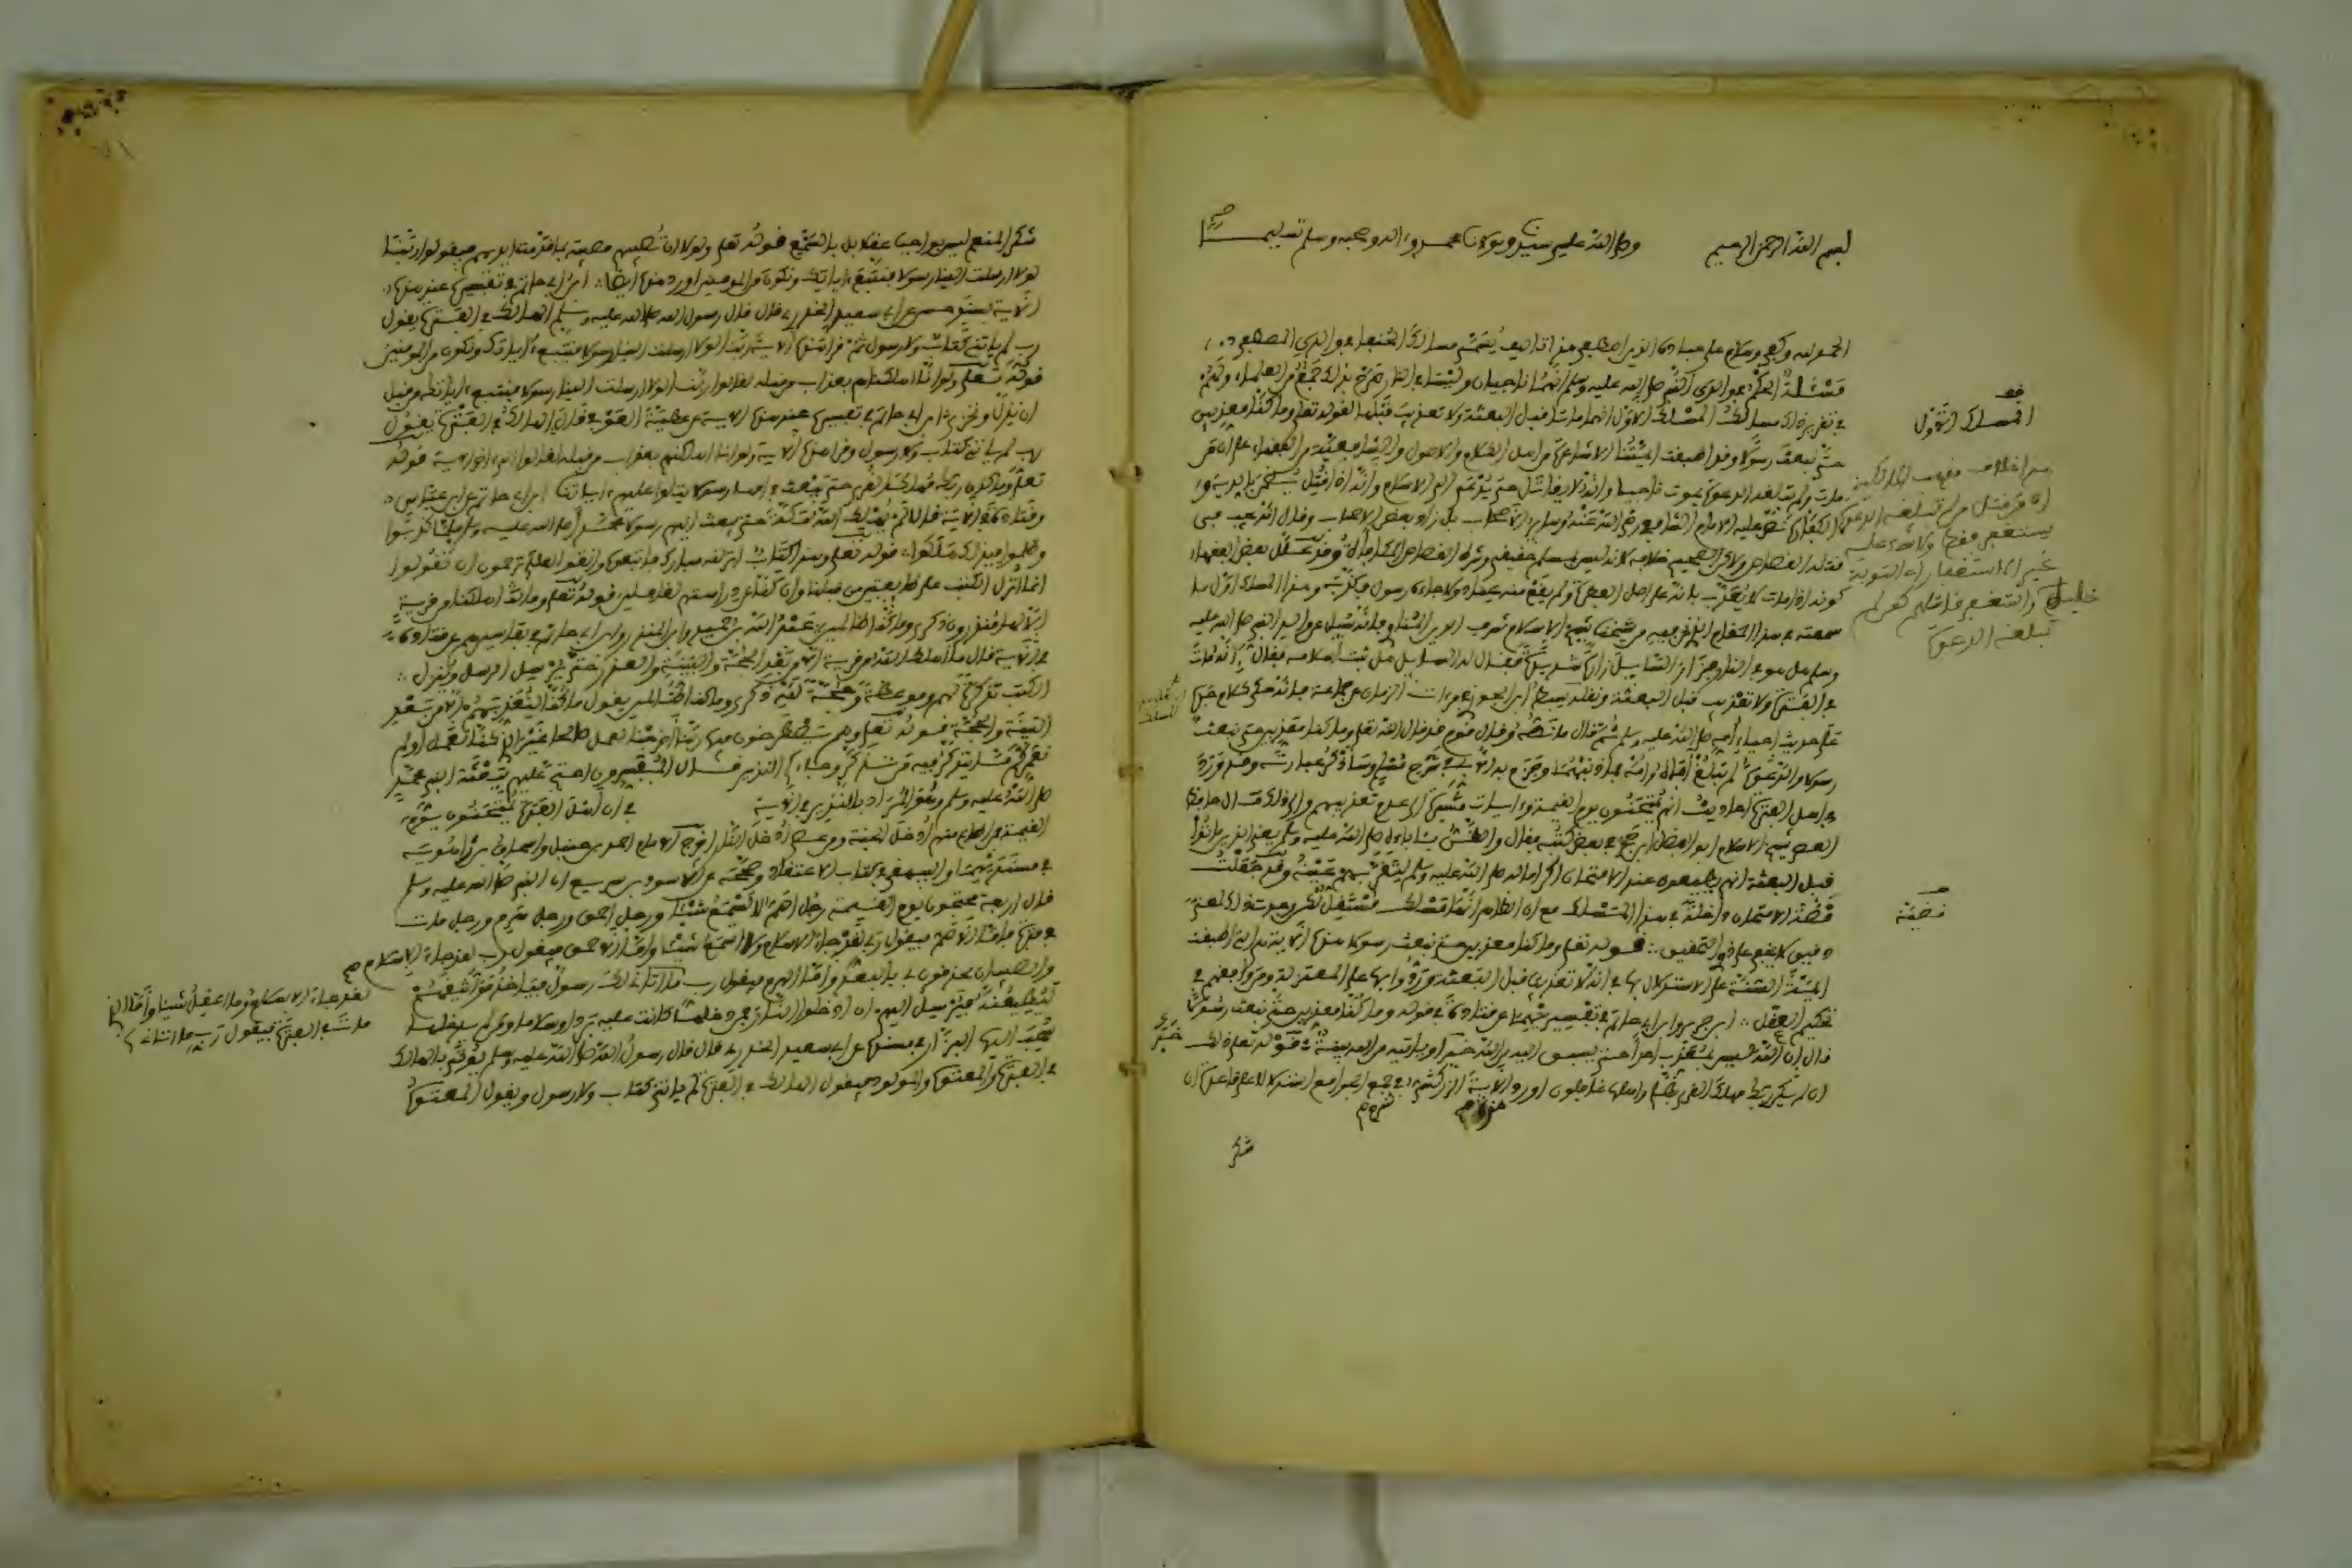 بسم الله الرحمن الرحيم وصلى الله على سيدنا ومولانا محمد وءاله وصحبه وسلم تسليما
الحمد لله وكفى وسلام على عباده الذين اصطفى هذا تاليف يسمى مسالك الحنفا في والدي المصطفى
مسئلة الحكم في ابوي النبي صلى الله عليه وسلم انهما ناجيان وليسا في النار صرح بذلك جمع من العلماء ولهم
في تقرير ذلك مسالك المسلك الاول انهما ماتا قبل البعثة ولا تعذيب قبلها لقوله تعلى وما كنا معذبين
حتى نبعث رسولا وقد اطبقت ايمتنا الاشاعرة من اهل الكلام والاصول والشافعية من الفقهاء على ان من
مات ولم تبلغه الدعوة يموت ناجيا وانه لا يقاتل حتى يدعى الى الاسلام وانه اذا قتل يضمن بالدية و
الكفارة نص عليه الامام الشافعي رضي الله عنه وسائر الاصحاب بل زاد بعض الاصحاب وقال انه يجب في
قتله القصاص ولاكن الصحيح خلافه لانه ليس بمسلم حقيقي وشرط القصاص المكافاة وقد علل بعض الفقهاء
كونه اذا مات لا يعذب بانه على اصل الفطرة ولم يقع منه عناد ولا جاءه رسول فكذبه وهذا المسلك اول ما
سمعته في هذا المقام الذي نحن فيه من شيخنا شيخ الاسلام شرف الدين المناوي فانه سئل عن والد النبي صلى الله عليه
وسلم هل هو في النار فزجر السائل زجرة شديدة فقال له السائل هل ثبت اسلامه فقال انه مات
في الفترة ولا تعذيب قبل البعثة ونقله سبط ابن الجوزي في مراة الزمان عن جماعة فانه حكى كلام جده
على حديث احياء امه صلى الله عليه وسلم ثم قال ما نصه وقال قوم قد قال الله تعلى وما كنا معذبين حتى نبعث
رسولا والدعوة لم تبلغ اباه وامه فما ذنبهما وجزم به الابي في شرح مسلم وساذكر عبارته وقد ورد
في اهل الفترة احاديث انهم يمتحنون يوم القيمة وءايات مشيرة الى عدم تعذيبهم والى ذلك مال حافظ
العصر شيخ الاسلام ابو الفضل ابن حجر في بعض كتبه فقال والظن بئابائه صلى الله عليه وسلم يعني الذين ماتوا
قبل البعثة انهم يطيعون عند الامتحان اكراما له صلى الله عليه وسلم لتقر بهم عينه وقد جعلت
قضية الامتحان داخلة في هذا المسلك مع ان الظاهر انها مسلك مستقل لكن وجدت ذلك لمعنى
دقيق لا يخفى على ذوي التحقيق قوله تعلى وما كنا معذبين حتى نبعث رسولا هذه الاية هي التي اطبقت
ايمة السنة على الاستدلال بها في انه لا تعذيب قبل البعثة وردوا بها على المعتزلة ومن وافقهم في
تحكيم العقل ابن جرير وابن ابي حاتم في تفسيريهما عن قتادة في قوله وما كنا معذبين حتى نبعث رسولا
قال ان الله ليس بمعذب احدا حتى يسبق اليه من الله خبر او ياتيه من الله بينة قوله تعلى ذلك
ان لم يكن ربك مهلك القرى بظلم واهلها غافلون اورد الاية الزركشي في جمع الجوامع استدلالا على قاعدة ان
شكر
المسلك الاول
قضية
شكر المنعم ليس بواجب عقلا بل بالسمع قوله تعلى ولولا ان تصيبهم مصيبة بما قدمت ايديهم فيقولوا ربنا
لولا ارسلت الينا رسولا فنتبع ءاياتك ونكون من المومنين اورد هذه ايضا ابن ابي حاتم في تفسيره عند هذه
الاية بسند حسن عن ابي سعيد الخدري قال قال رسول الله صلى الله عليه وسلم الهالك في الفترة يقول
رب لم ياتني كتاب ولا رسول ثم قرا هذه الاية ربنا لولا ارسلت الينا رسولا فنتبع ءاياتك ونكون من المومنين
قوله تعلى ولو انا اهلكناهم بعذاب من قبله لقالوا ربنا لولا ارسلت الينا رسولا فنتبع ءاياتك من قبل
ان نذل ونخزى ابن ابي حاتم في تفسيره عند هذه الاية عن عطية العوفي قال الهالك في الفترة يقول
رب لم ياتني كتاب ولا رسول وقرا هذه الاية ولو انا اهلكناهم بعذاب من قبله لقالوا الى اخر الاية قوله
تعلى وما كان ربك مهلك القرى حتى يبعث في امها رسولا يتلوا عليهم ءاياتنا ابن ابي حاتم عن ابن عباس
وقتادة في الاية قالا لم يهلك الله مكة حتى بعث اليهم رسولا محمدا صلى الله عليه وسلم فلما كذبوا
وظلموا فبذلك هلكوا قوله تعلى وهذا كتاب انزلنه مبارك فاتبعوه واتقوا لعلكم ترحمون ان تقولوا
انما انزل الكتب على طائفتين من قبلنا وان كنا عن دراستهم لغافلين قوله تعلى وما اهلكنا من قرية
الا لها منذرون ذكرى وما كنا ظالمين عبد الله بن حميد وابن المنذر وابن ابي حاتم في تفاسيرهم عن قتادة
في الاية قال ما اهلك الله من قرية الا من بعد الحجة والبينة والعذر حتى يرسل الرسل وينزل
الكتب تذكرة لهم وموعظة وحجة لله ذكرى وما كنا ظالمين يقول ما كنا لنعذبهم الا من بعد
البينة والحجة قوله تعلى وهم يصطرخون فيها ربنا اخرجنا نعمل صالحا غير الذي كنا نعمل اولم
نعمركم ما يتذكر فيه من تذكر وجاءكم النذير قال المفسرون احتج عليهم ببعثة النبي محمد
صلى الله عليه وسلم وهو المراد بالنذير في الاية في ان اهل الفترة يمتحنون يوم
القيمة فمن اطاع منهم ادخل الجنة ومن عصى ادخل النار اخرج الامام احمد بن حنبل واسحاق بن راهويه
في مسنديهما والبيهقي في كتاب الاعتقاد وصححه عن الاسود بن سريع ان النبي صلى الله عليه وسلم
قال اربعة يمتحنون يوم القيمة رجل اصم لا يسمع شيئا ورجل احمق ورجل هرم ورجل مات
في فترة فاما الاصم فيقول رب لقد جاء الاسلام وما اسمع شيئا واما الاحمق فيقول رب لقد جاء الاسلام
والصبيان يحذفوني بالبعر واما الهرم فيقول رب ما اتاني لك رسول فياخذ مواثيقهم
ليطيعنه فيرسل اليهم ان ادخلوا النار فمن دخلها كانت عليه بردا وسلاما ومن لم يدخلها
سحب اليها البزار في مسنده عن ابي سعيد الخدري قال قال رسول الله صلى الله عليه وسلم يوتى بالهالك
في الفترة والمعتوه والمولود فيقول الهالك في الفترة لم ياتني كتاب ولا رسول ويقول المعتوه
لقد جاء الاسلام وما اعقل شيئا واما الذي
مات في الفترة فيقول رب ما اتاني